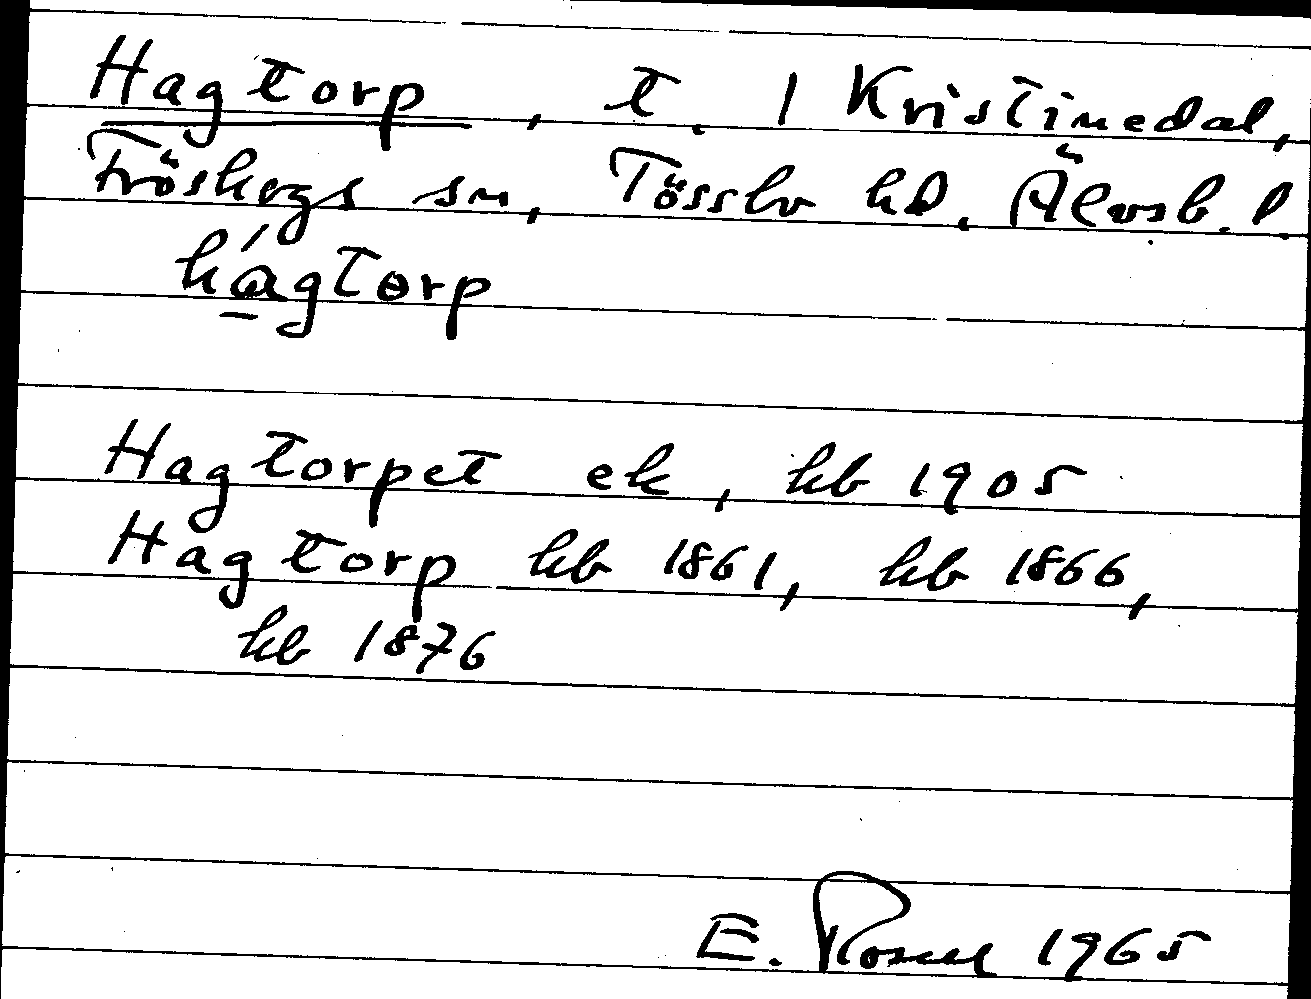 Hagtorp, t. / Kristinedal,
Fröskogs sn, Tössbo hd. Älvsb. l.
hágtorp
Hagtorpet ek, kb 1905
Hagtorp kb 1861, kb 1866,
kb 1876
E. Rosell 1965